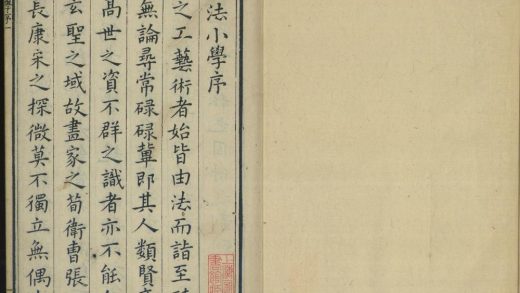 法小學序
之工藝術者始皆由法而詣至
無論尋常碌碌輩即其人類賢
高世之資不群之識者亦不能
玄聖之域故畫家之荀衛曹張
長康宋之探微莫不獨立無偶